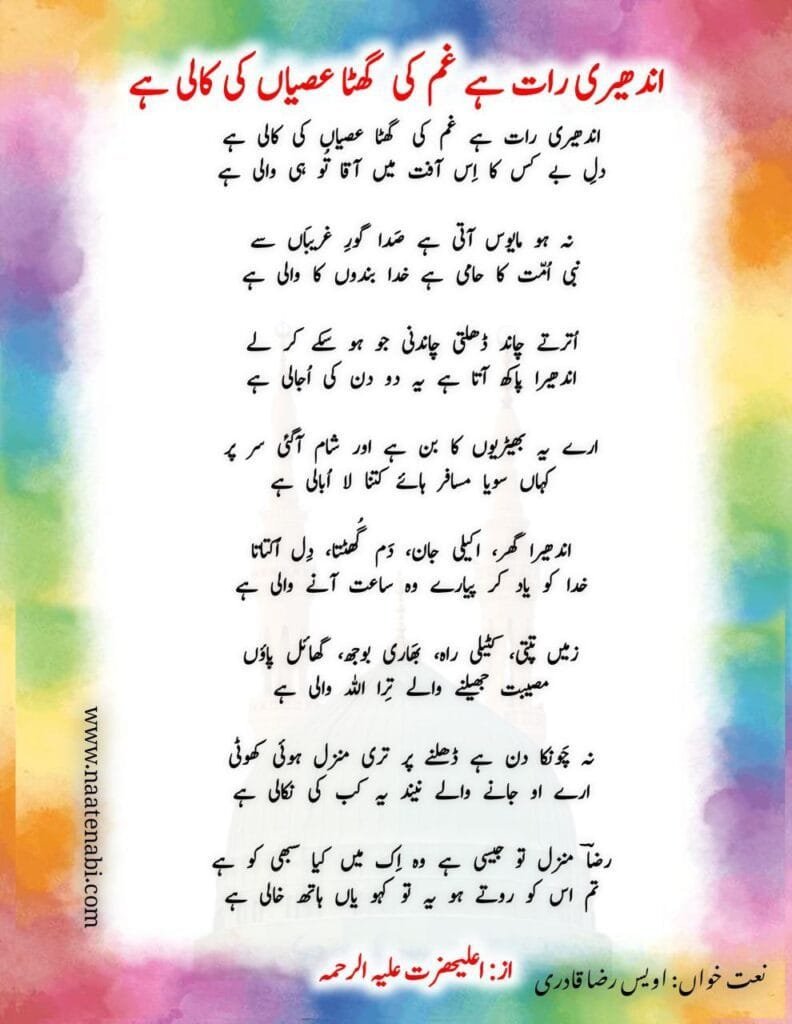 اندھیری رات ہے غم کی گھٹا عصیاں کی کالی ہے
اندھیری رات ہے غم کی گھٹا عصیاں کی کالی ہے
دلِ بے کس کا اِس آفت میں آقا تُو ہی والی ہے
نہ ہو مایوس آتی ہے صَدا گورِ غریبَاں سے
نبی اُمّت کا حامی ہے خدا بندوں کا والی ہے
اُترتے چاند ڈھلتی چاندنی جو ہو سکے کر لے
اندھیرا پاکھ آتا ہے یہ دو دن کی اُجالی ہے
ارے یہ بھیڑیوں کا بن ہے اور شام آگئی سر پر
کہاں سویا مسافر ہائے کتنا لا اُبالی ہے
اندھیرا گھر، اکیلی جان، دَم گُھٹتا، دِل اُکتاتا
خدا کو یاد کر پیارے وہ ساعت آنے والی ہے
زمیں تپتی، کٹیلی راہ، بھَاری بوجھ، گھائل پاؤں
مصیبت جھیلنے والے تِرا اللہ والی ہے
نہ چَونکا دن ہے ڈھلنے پر تری منزل ہوئی کھوٹی
ارے او جانے والے نیند یہ کب کی نکالی ہے
رضاؔ منزل تو جیسی ہے وہ اِک میں کیا سبھی کو ہے
تم اس کو روتے ہو یہ تو کہو یاں ہاتھ خالی ہے
از: اعلیحضرت علیہ الرحمہ
نعت خواں: اویس رضا قادری
www.naatenabi.com